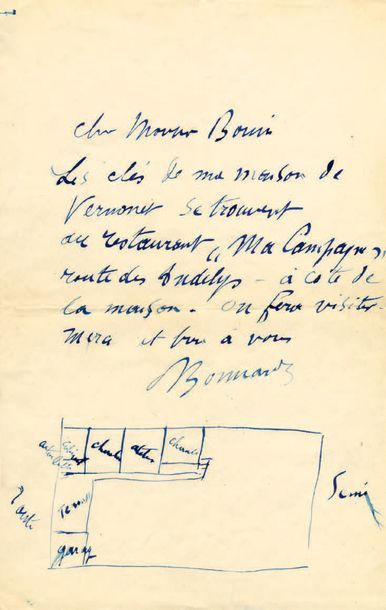 cher Monsieur Bouin
Les clés de ma maison de
Vernonet se trouvent
au restaurant "Ma Campagne"
route des Andelys - à côté de
la maison. on fera visiter
merci et bien à vous
Bonnard
chambre atelier chambre
Cabinet
Seine
garage